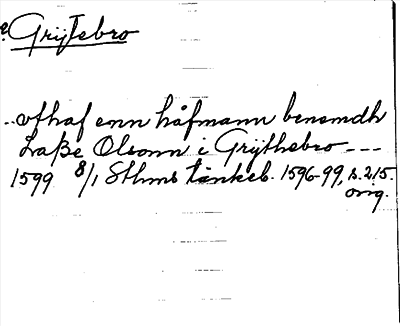 Grijtebro
..vthaf enn håfmann benemdh
Laße Olsonn i Grÿthebro ---
1599 8/1 Sthms tänkeb. 1596-99, s. 215.
orig.